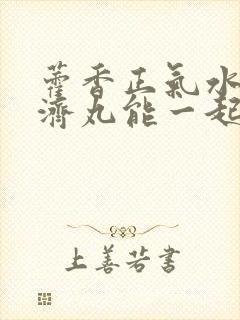 藿香正氣水
濟丸能一起
上善若書